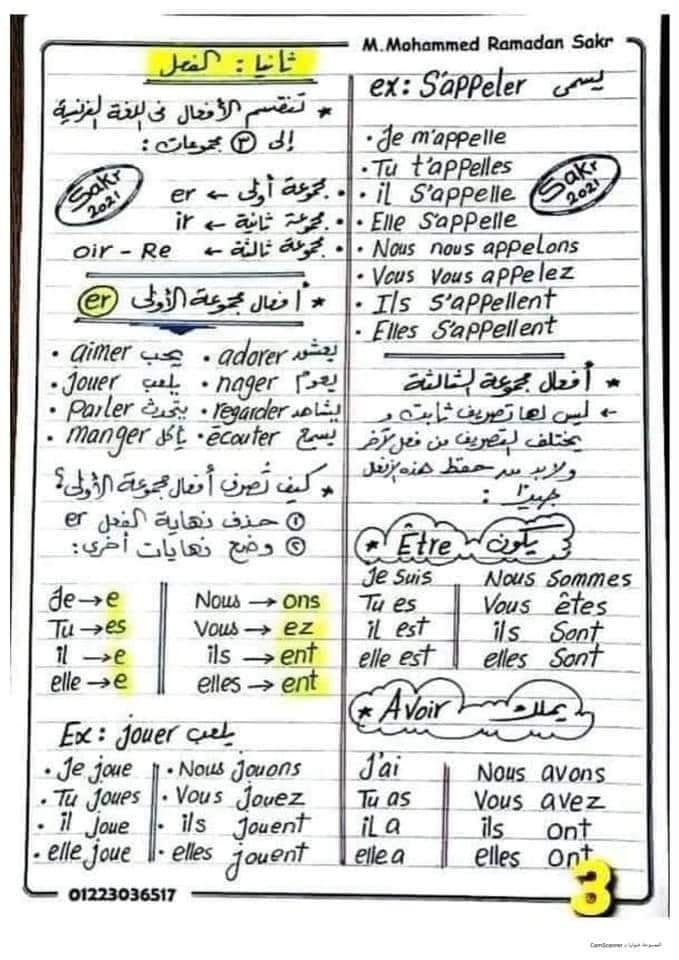 M.Mohammed Ramadan Sakr
ثانيا: الفعل
* تنقسم الأفعال فى اللغة الفرنسية
إلى ٣ مجموعات:
Sakr
2021
• مجموعة أولى ← er
• مجموعة ثانية ← ir
• مجموعة ثالثة ← oir - Re
* أفعال مجموعة الأولى er
• aimer يحب • adorer يعشق
• jouer يلعب • nager يعوم
• Parler يتحدث • regarder يشاهد
• manger يأكل • écouter يسمع
* كيف تُصرف أفعال مجموعة الأولى؟
١ حذف نهاية الفعل er
٢ وضع نهايات أخرى:
Je → e Nous → ons
Tu → es Vous → ez
il → e ils → ent
elle → e elles → ent
Ex: jouer يلعب
• Je joue • Nous jouons
• Tu joues • Vous jouez
• il joue • ils jouent
• elle joue • elles jouent
ex: S'appeler يسمى
• Je m'appelle
• Tu t'appelles
• il S'appelle
• Elle S'appelle
• Nous nous appelons
• Vous vous appelez
• Ils S'appellent
• Elles S'appellent
Sakr
2021
* أفعال مجموعة الثالثة
← ليس لها تصريف ثابت و
يختلف التصريف من فعل لآخر
ولابد من حفظ هذه الأفعال
جيدًا:
* Être يكون
Je Suis Nous Sommes
Tu es Vous êtes
il est ils Sont
elle est elles Sont
* Avoir يملك
J'ai Nous avons
Tu as Vous avez
iL a ils ont
elle a elles ont
01223036517
3
الممسوحة ضوئيا بـ CamScanner